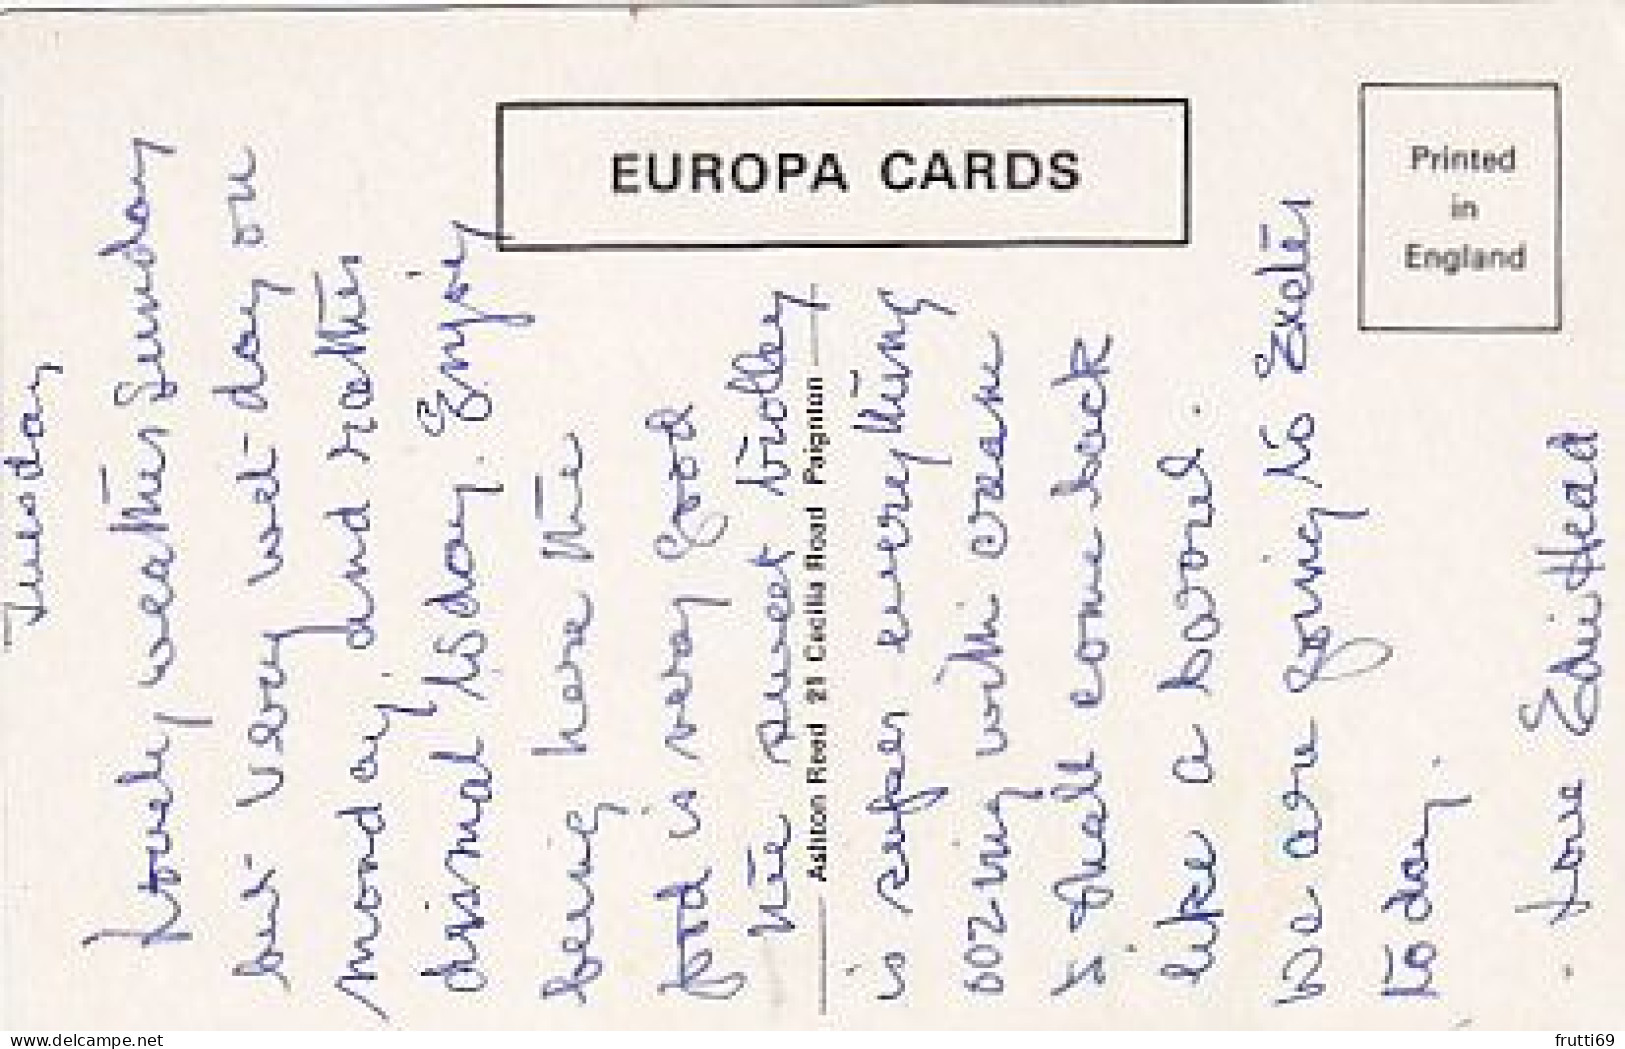 EUROPA CARDS
Printed
in
England
Ashton Reed 21 Cecilia Road Paignton
Tuesday
Lovely weather Sunday
but very wet day on
monday, and rather
dismal to day. Enjoy
being here the
food is very Good
the sweet trolley
is super everything
oozing with cream
I shall come back
like a barrel.
We are going to Exeter
to day.
Love Edie Head
delcampe.net
frutti69